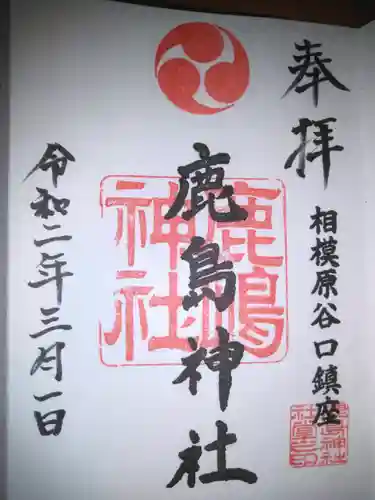 奉拝
相模原谷口鎮座
鹿島神社
鹿嶋神社
令和二年三月一日